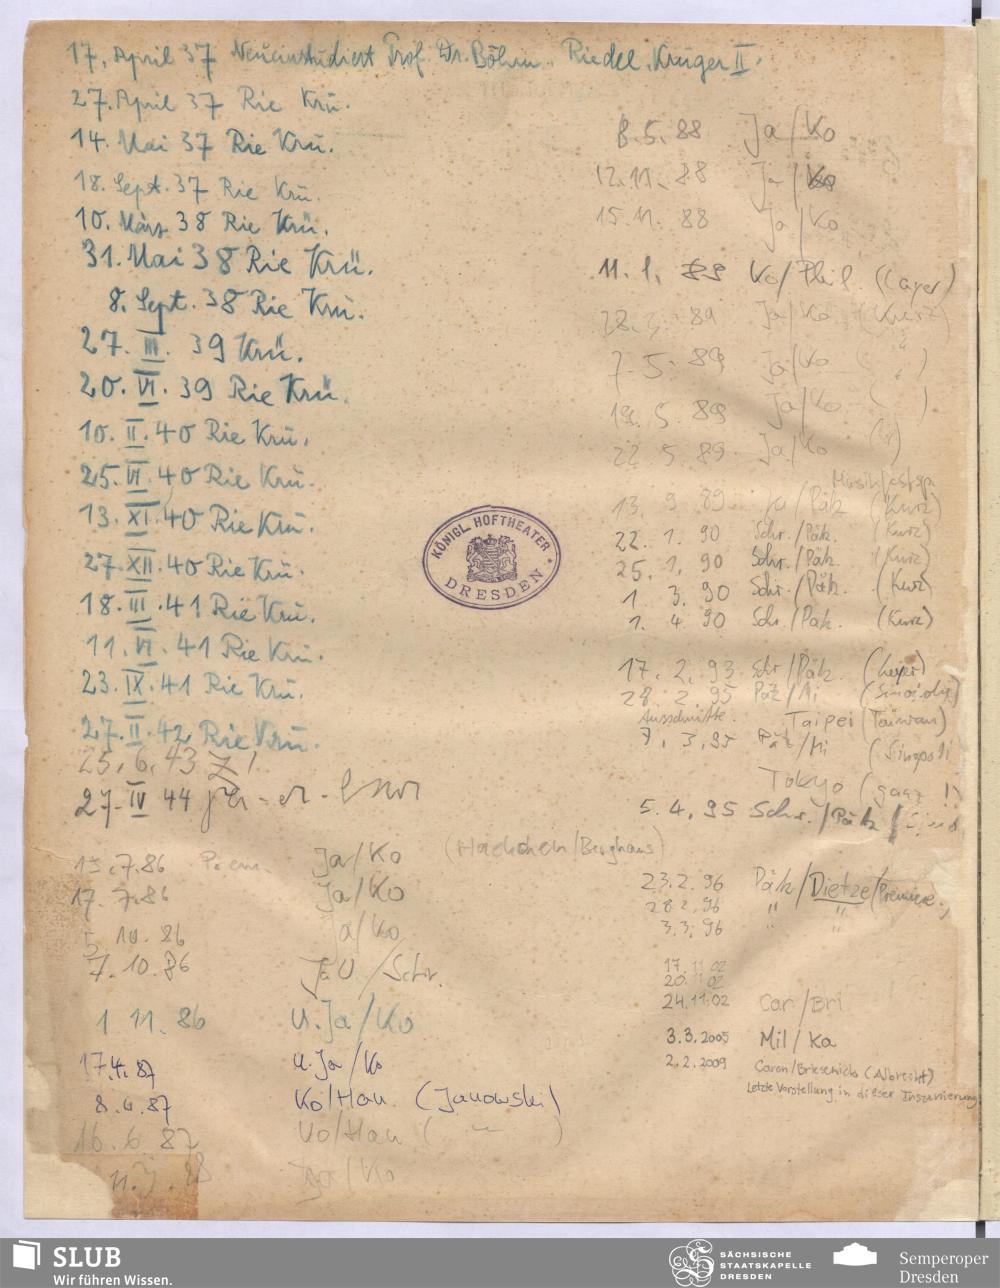 17. April 37 Neueinstudiert Prof. Dr. Böhm. Riedel. Krüger II.
27. April 37 Rie Krü.
14. Mai 37 Rie Krü.
18. Sept. 37 Rie Krü.
10. März 38 Rie Krü.
31. Mai 38 Rie Krü.
8. Sept. 38 Rie Krü.
27. III. 39 Krü.
20. VI. 39 Rie Krü.
10. II. 40 Rie Krü.
25. VI. 40 Rie Krü.
13. XI. 40 Rie Krü.
27. XII. 40 Rie Krü.
18. III. 41 Rie Krü.
11. VI. 41 Rie Krü.
23. IX. 41 Rie Krü.
27. II. 42 Rie Krü.
25. 6. 43
27. IV 44
15. 7. 86 Ja/Ko (Haenchen/Berghaus)
17. 7. 86 Ja/Ko
5. 10. 86 Ja/Ko
7. 10. 86 Ja U. /Schr.
1 11. 86 U. Ja/Ko
17.4. 87 U. Ja/Ko
8. 6. 87 Ko/Hau (Janowski)
16. 6. 87 Ko/Hau ( " )
88 Ja/Ko
8. 5. 88 Ja/Ko
12. 11. 88 Ja/Ko
15. 11. 88 Ja/Ko
11. 1. 89 Ko/Phil. (Layer)
28. 89 Ja/Ko (Kurz)
7. 5. 89 Ja/Ko ( " )
19. 5 89 Ja/Ko ( )
22 5 89. Ja/Ko
Musikfestsp.
13. 9 89 /Pätz (Kurz)
22. 1. 90 Schr./Pätz. (Kurz)
25. 1. 90 Schr./Pätz. (Kurz)
1 3. 90 Schr./Pätz. (Kurz)
1. 4. 90 Schr./Pätz. (Kurz)
17. 2. 93. Schr/Pätz (Layer)
28. 2. 95 Pätz/Mi (Sinopoli)
Ausschnitte. Taipei (Taiwan)
7. 3. 95 Pätz/Mi (Sinopoli
Tokyo (ganz !)
5. 4. 95 Schr./Pätz/
23. 2. 96 Pätz/Dietze/Premiere.
28 2. 96 " "
3.3. 96 " "
17. 11 02
20. 11 02
24. 11. 02 Car/Bri
3.3. 2005 Mil/Ka
2.2. 2009 Caron/Brieschick (Albrecht)
Letzte Vorstellung in dieser Inszenierung
KÖNIGL. HOFTHEATER
DRESDEN
SLUB
Wir führen Wissen.
SÄCHSISCHE
STAATSKAPELLE
DRESDEN
Semperoper
Dresden